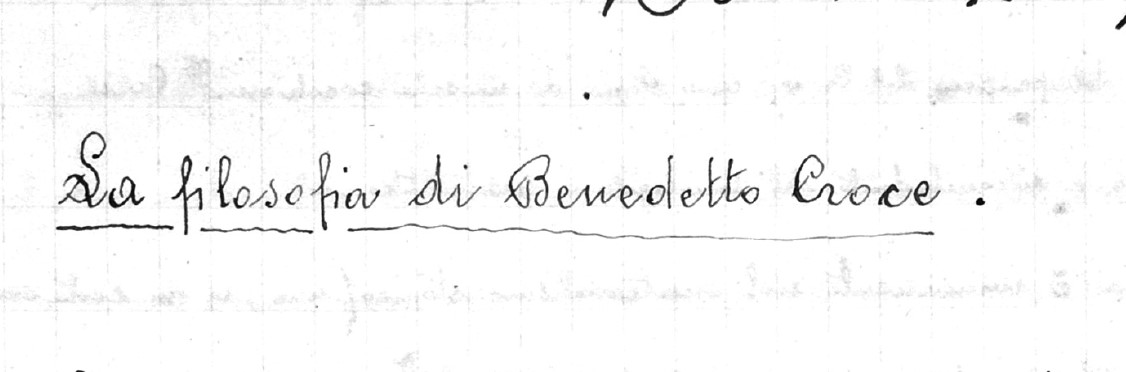 La filosofia di Benedetto Croce .